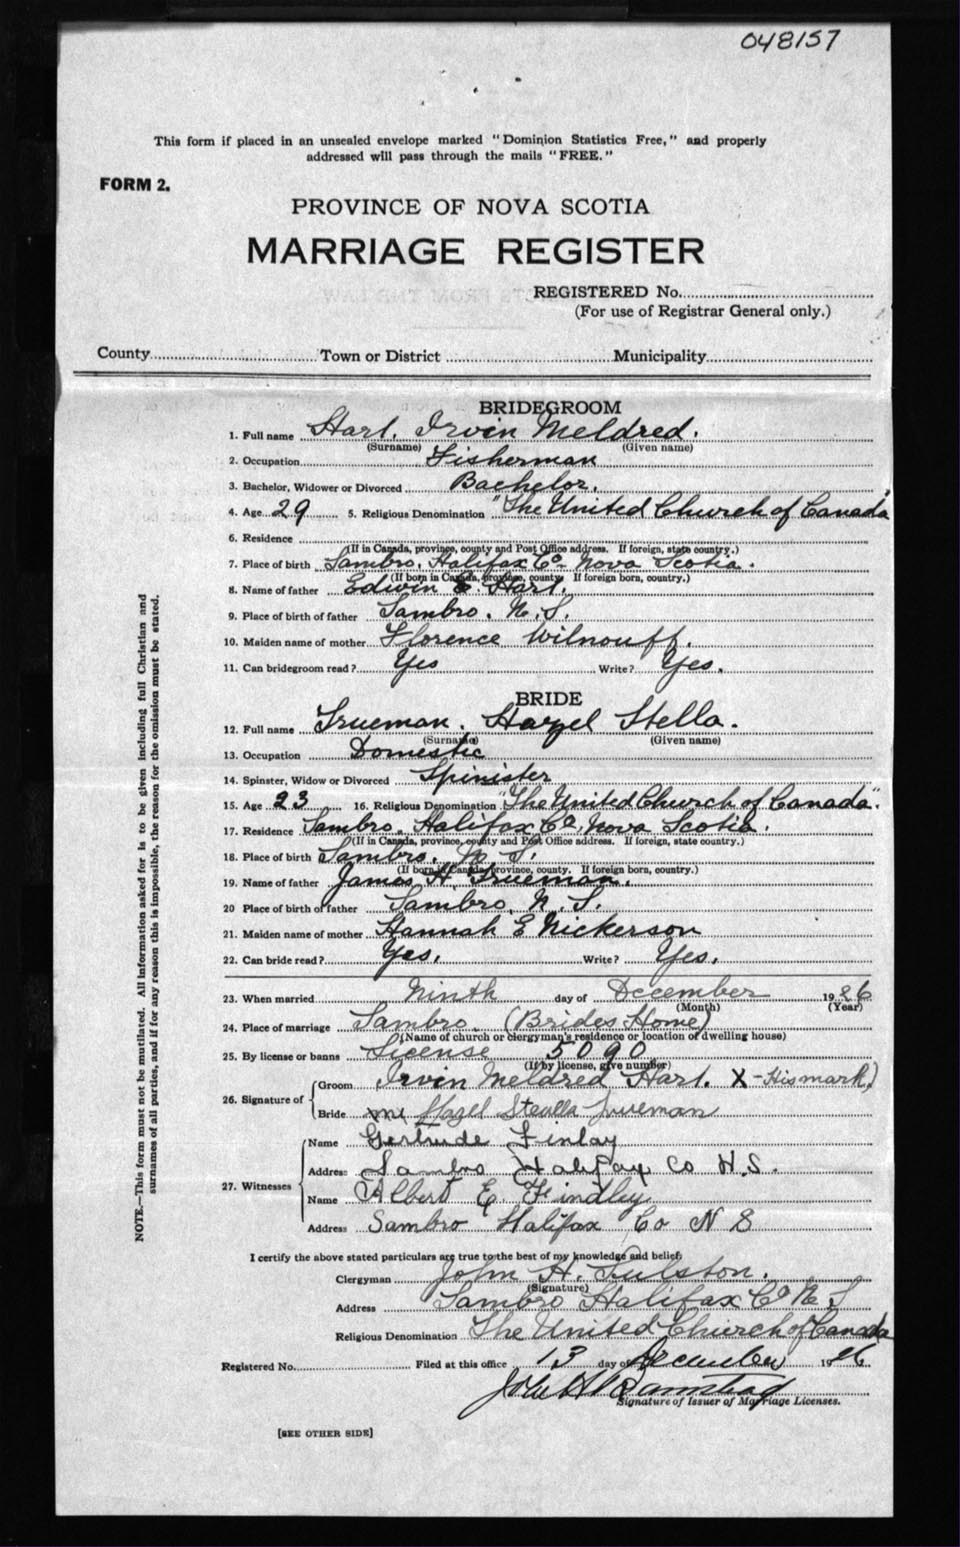 048157
This form if placed in an unsealed envelope marked "Dominion Statistics Free," and properly
addressed will pass through the mails "FREE."
FORM 2.
PROVINCE OF NOVA SCOTIA
MARRIAGE REGISTER
REGISTERED No.
(For use of Registrar General only.)
County Town or District Municipality
BRIDEGROOM
1. Full name Hart. Irvin Meldred.
(Surname) (Given name)
2. Occupation Fisherman
3. Bachelor, Widower or Divorced Bachelor.
4. Age 29 5. Religious Denomination "The United Church of Canada"
6. Residence
(If in Canada, province, county and Post Office address. If foreign, state country.)
7. Place of birth Sambro, Halifax Co. Nova Scotia.
(If born in Canada, province, county. If foreign born, country.)
8. Name of father Edwin E. Hart.
9. Place of birth of father Sambro. N. S.
10. Maiden name of mother Florence
11. Can bridegroom read? Yes Write? Yes.
BRIDE
12. Full name Trueman. Hazel Stella.
(Surname) (Given name)
13. Occupation Domestic
14. Spinster, Widow or Divorced Spinister
15. Age 23 16. Religious Denomination "The United Church of Canada".
17. Residence Sambro, Halifax Co, Nova Scotia.
(If in Canada, province, county and Post Office address. If foreign, state country.)
18. Place of birth Sambro. N. S.
(If born in Canada, province, county. If foreign born, country.)
19. Name of father James H. Trueman.
20 Place of birth of father Sambro, N. S.
21. Maiden name of mother Hannah E Nickerson
22. Can bride read? Yes. Write? Yes.
23. When married Ninth day of December 1926
(Month) (Year)
24. Place of marriage Sambro. (Brides Home)
(Name of church or clergyman's residence or location of dwelling house)
25. By license or banns License 5090
(If by license, give number)
26. Signature of
Groom Irvin Meldred Hart. X - His mark)
Bride Hazel Steulla Trueman
27. Witnesses
Name Gertrude Finlay
Address Sambro Halifax Co N.S.
Name Albert E. Findley
Address Sambro Halifax Co N S
I certify the above stated particulars are true to the best of my knowledge and belief:
Clergyman John H.
(Signature)
Address Sambro Halifax Co N. S
Religious Denomination The United Church of Canada
Registered No. Filed at this office 13 day of December 1926
John H
Signature of Issuer of Marriage Licenses.
[SEE OTHER SIDE]
NOTE.—This form must not be mutilated. All information asked for is to be given including full Christian and
surnames of all parties, and if for any reason this is impossible, the reason for the omission must be stated.